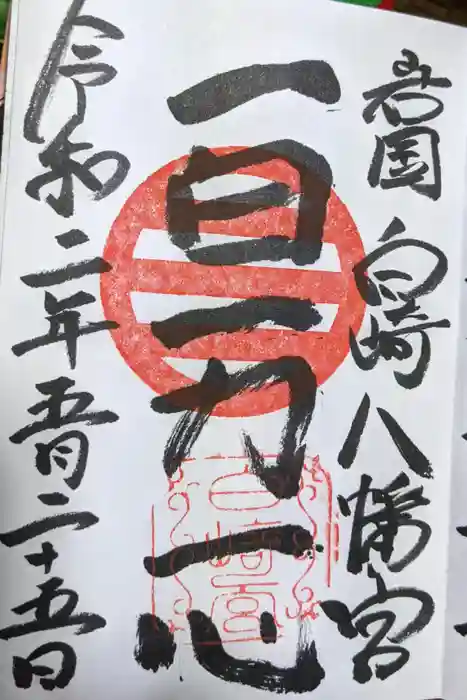 岩国 白崎八幡宮
一日一力一心
白崎宮
令和二年五月二十五日